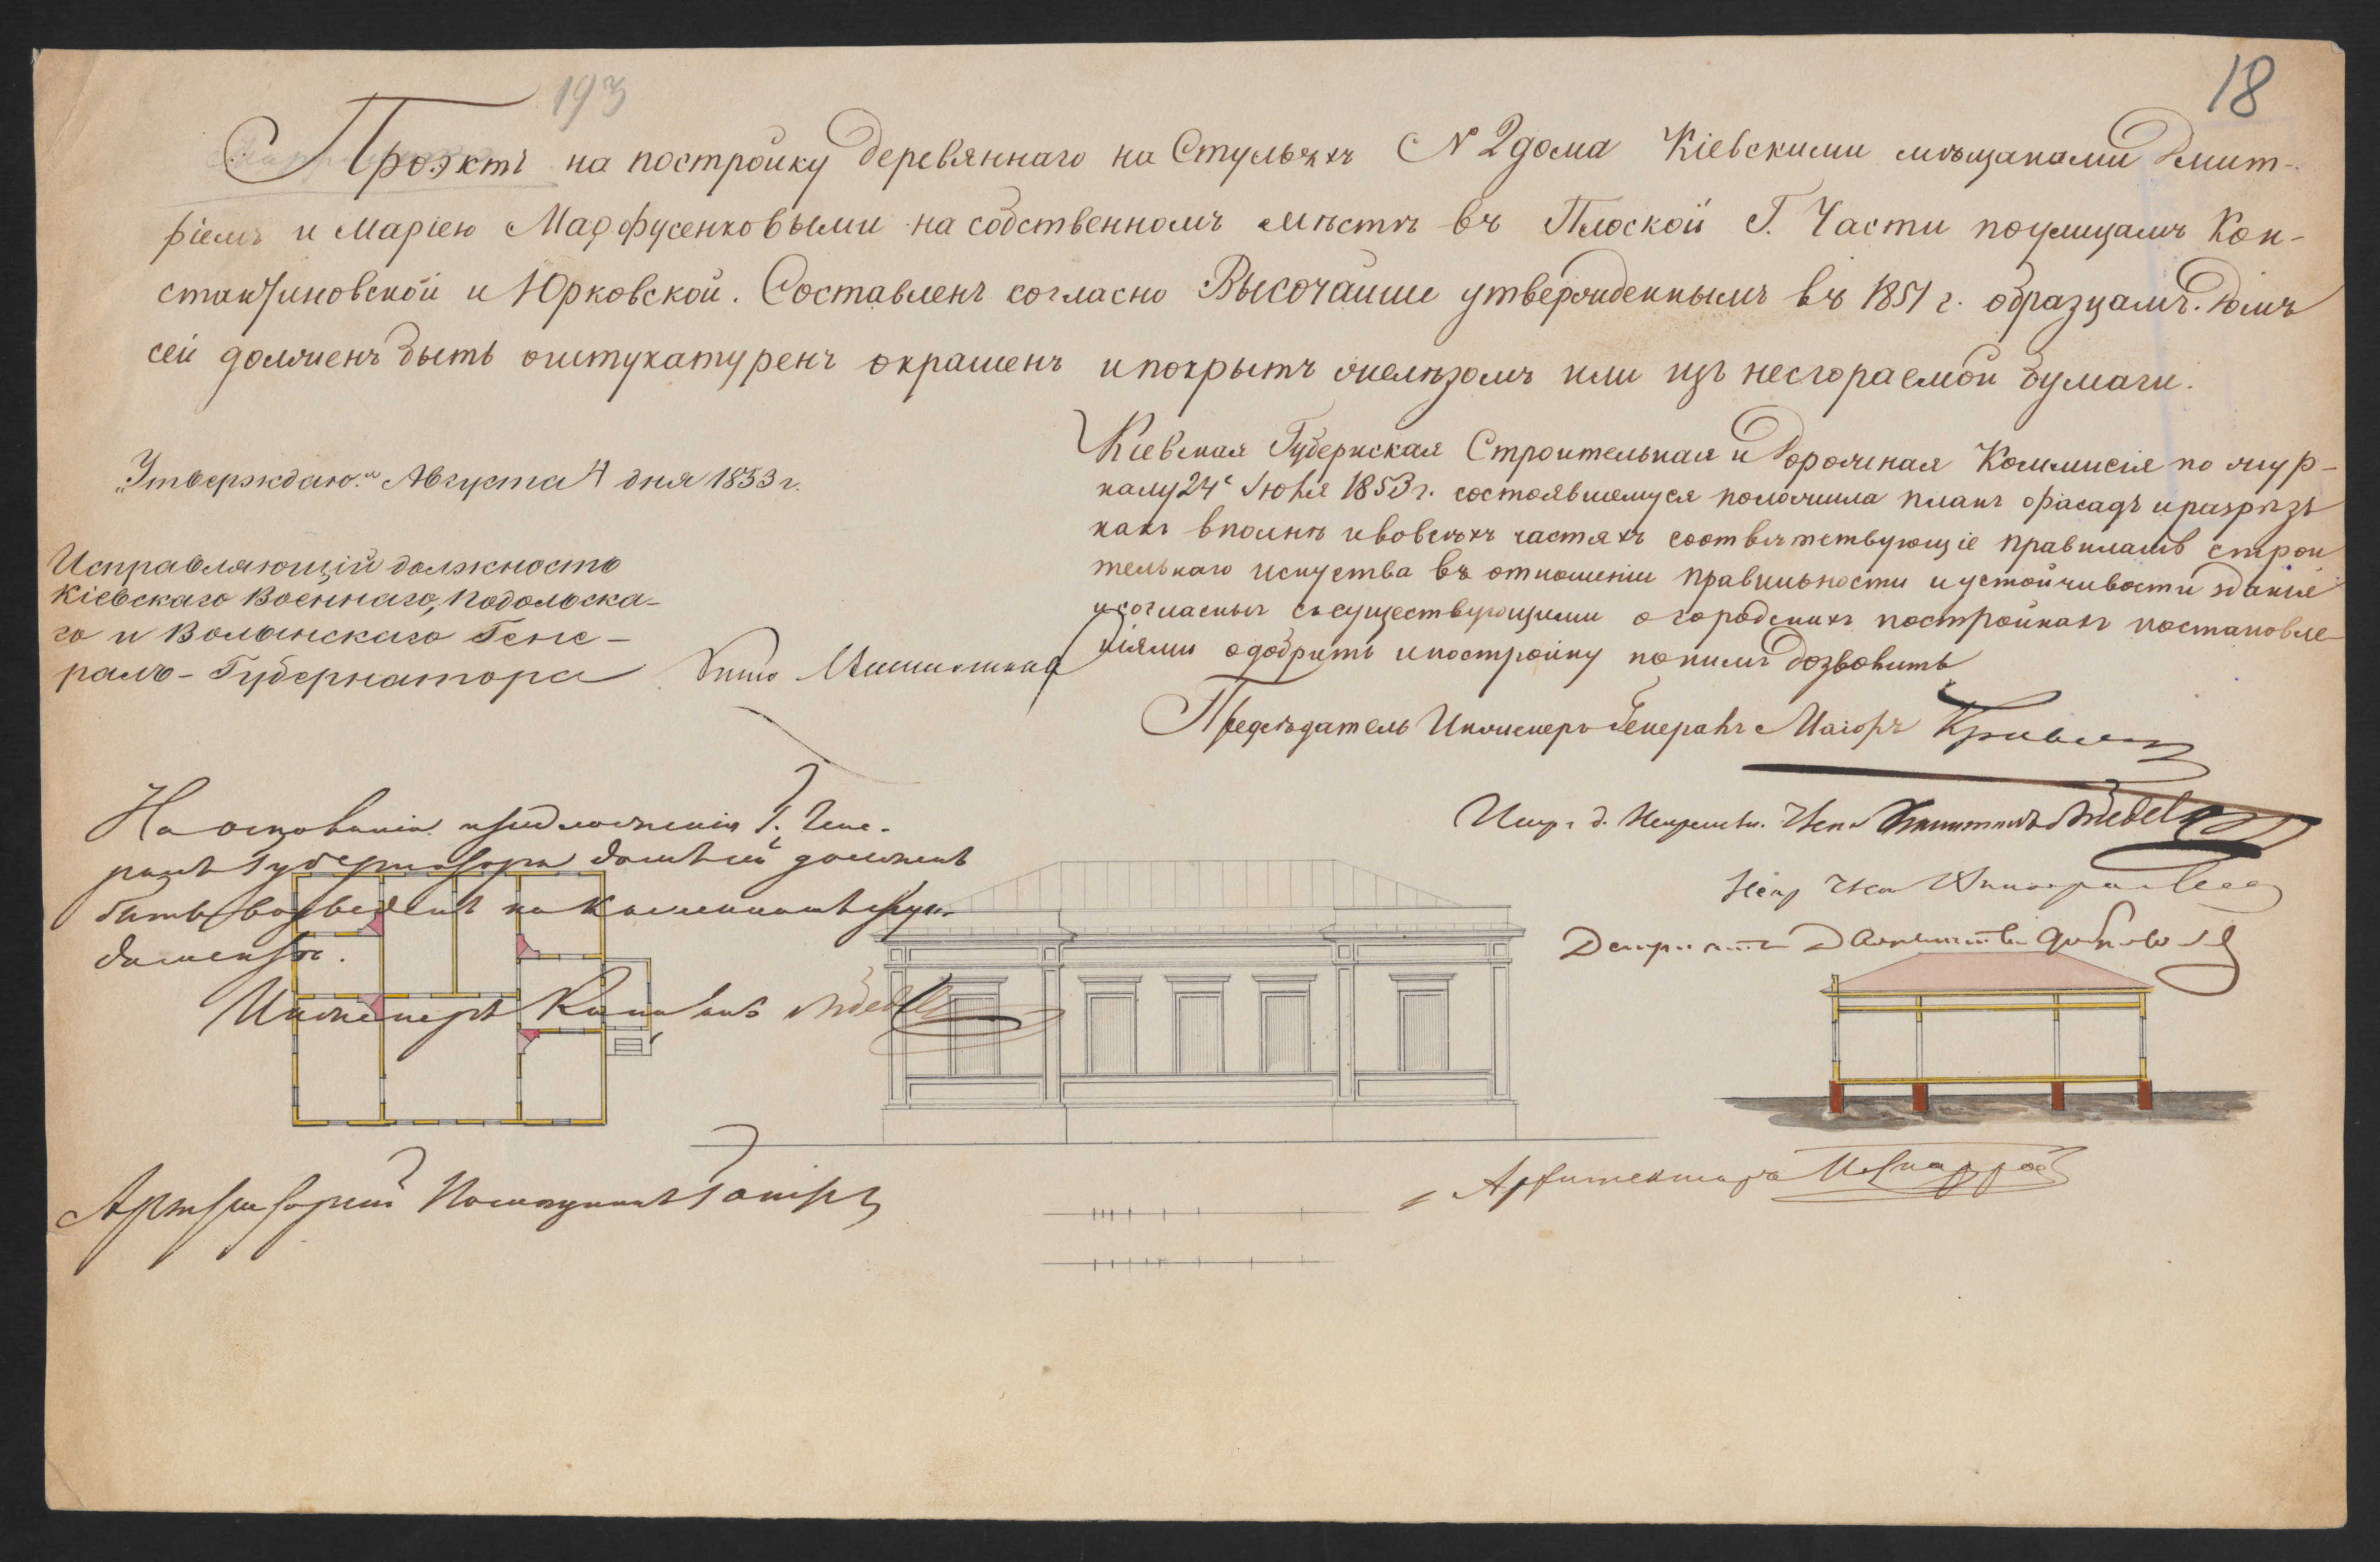 193
18
Проэктъ на постройку деревяннаго на Стульяхъ № 2 дома Кіевскими мѣщанами Дмит-
ріемъ и Маріею Марфусенковыми на собственномъ мѣстѣ въ Плоской Г. Части по улицамъ Кон-
стантиновской и Юрковской. Составленъ согласно Высочайше утвержденнымъ въ 1851 г. образцамъ. Домъ
сей долженъ быть оштукатуренъ окрашенъ и покрытъ желѣзомъ или изъ несгораемой бумаги.
„Утверждаю." Августа 4 дня 1853 г.
Исправляющій должность
Кіевскаго Военнаго, Подольска-
го и Волынскаго Гене-
ралъ-Губернатора
Кіевская Губернская Строительная и Дорожная Коммисія по жур-
налу 24 Іюля 1853 г. состоявшемуся положила планъ фасадъ и разрѣзъ
какъ вполнѣ и вовсѣхъ частяхъ соотвѣтствующіе правиламъ строи
тельнаго искуства въ отношеніи правильности и устойчивости зданія
и согласныя съ существующими о городскихъ постройкахъ постановле
ніями одобрить и постройку по нимъ дозволить
Предсѣдатель Инженеръ Генералъ Маіоръ
На основаніи предложенія Г. Гене-
ралъ Губернатора домъ сей долженъ
быть возведенъ на каменномъ фун-
даментѣ.
Инженеръ Капитанъ
Архитекторъ